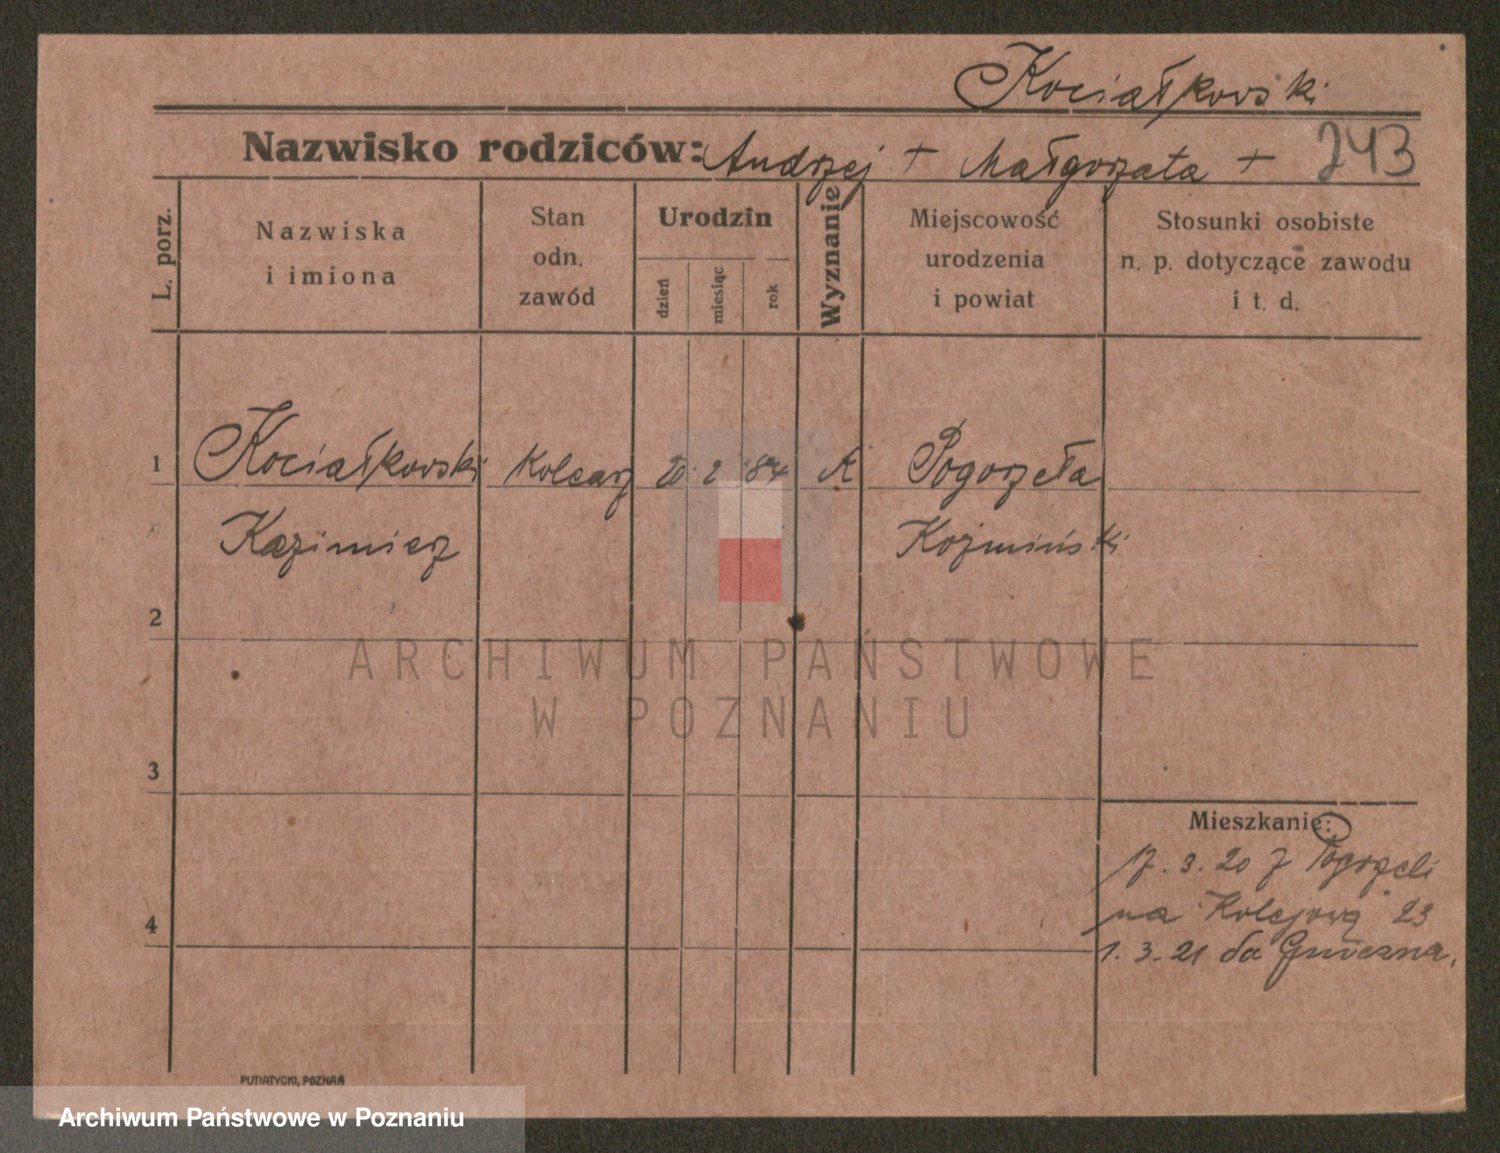 Kociałkowski
Nazwisko rodziców: Andrzej + Małgorzata + 243
L. porz.
Nazwiska
i imiona
Stan
odn.
zawód
Urodzin
dzień
miesiąc
rok
Wyznanie
Miejscowość
urodzenia
i powiat
Stosunki osobiste
n. p. dotyczące zawodu
i t. d.
1 Kociałkowski Kolearz 20 2 84 K Pogorzela
Kazimierz Koźmiński
2
ARCHIWUM PAŃSTWOWE
W POZNANIU
3
Mieszkanie:
17. 3. 20 z Pogorzeli
na Kolejową 23
4
1. 3. 21 do
PUTIATYCKI, POZNAŃ
Archiwum Państwowe w Poznaniu